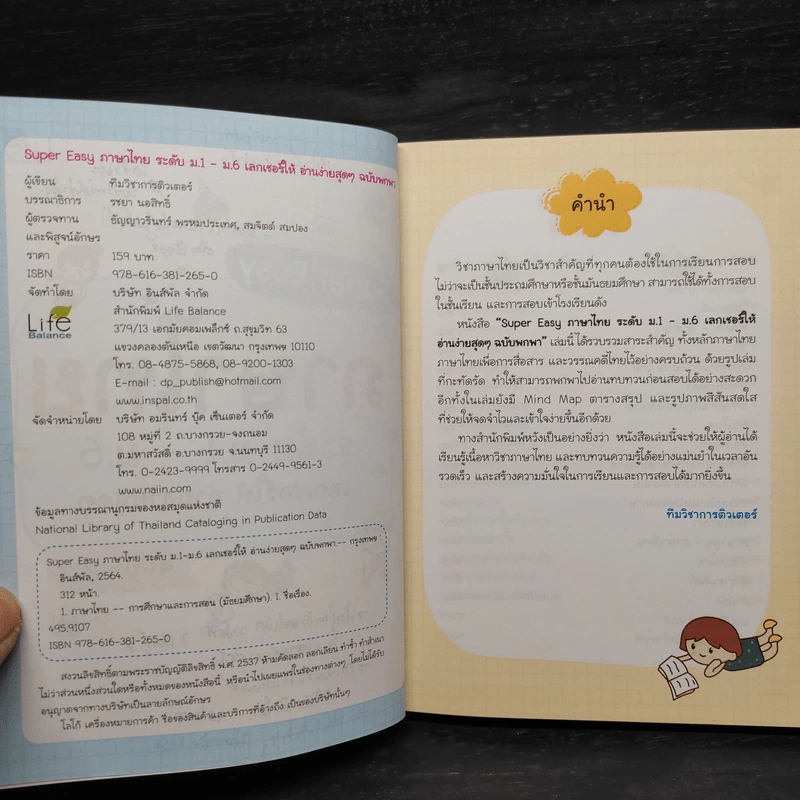 Super Easy ภาษาไทย ระดับ ม.1 - ม.6 เลกเชอร์ให้ อ่านง่ายสุดๆ ฉบับพกพา
ผู้เขียน ทีมวิชาการติวเตอร์
บรรณาธิการ รชยา นอสิทธิ์
ผู้ตรวจทาน ธัญญาวรินทร์ พรหมประเทศ, สมจิตต์ สมปอง
และพิสูจน์อักษร
ราคา 159 บาท
ISBN 978-616-381-265-0
จัดทำโดย บริษัท อินส์พัล จำกัด
สำนักพิมพ์ Life Balance
Life
Balance
379/13 เอกมัยคอมเพล็กซ์ ถ.สุขุมวิท 63
แขวงคลองตันเหนือ เขตวัฒนา กรุงเทพฯ 10110
โทร. 08-4875-5868, 08-9200-1303
E-mail : dp_publish@hotmail.com
www.inspal.co.th
จัดจำหน่ายโดย บริษัท อมรินทร์ บุ๊ค เซ็นเตอร์ จำกัด
108 หมู่ที่ 2 ถ.บางกรวย-จงถนอม
ต.มหาสวัสดิ์ อ.บางกรวย จ.นนทบุรี 11130
โทร. 0-2423-9999 โทรสาร 0-2449-9561-3
www.naiin.com
ข้อมูลทางบรรณานุกรมของหอสมุดแห่งชาติ
National Library of Thailand Cataloging in Publication Data
Super Easy ภาษาไทย ระดับ ม.1-ม.6 เลกเชอร์ให้ อ่านง่ายสุดๆ ฉบับพกพา.-- กรุงเทพฯ :
อินส์พัล, 2564.
312 หน้า.
1. ภาษาไทย -- การศึกษาและการสอน (มัธยมศึกษา). I. ชื่อเรื่อง.
495.9107
ISBN 978-616-381-265-0
สงวนลิขสิทธิ์ตามพระราชบัญญัติลิขสิทธิ์ พ.ศ. 2537 ห้ามคัดลอก ลอกเลียน ทำซ้ำ ทำสำเนา
ไม่ว่าส่วนหนึ่งส่วนใดหรือทั้งหมดของหนังสือนี้ หรือนำไปเผยแพร่ในช่องทางต่างๆ โดยไม่ได้รับ
อนุญาตจากทางบริษัทเป็นลายลักษณ์อักษร
โลโก้ เครื่องหมายการค้า ชื่อของสินค้าและบริการที่อ้างถึง เป็นของบริษัทนั้นๆ
คำนำ
วิชาภาษาไทยเป็นวิชาสำคัญที่ทุกคนต้องใช้ในการเรียนการสอบ
ไม่ว่าจะเป็นชั้นประถมศึกษาหรือชั้นมัธยมศึกษา สามารถใช้ได้ทั้งการสอบ
ในชั้นเรียน และการสอบเข้าโรงเรียนดัง
หนังสือ "Super Easy ภาษาไทย ระดับ ม.1 - ม.6 เลกเชอร์ให้
อ่านง่ายสุดๆ ฉบับพกพา" เล่มนี้ ได้รวบรวมสาระสำคัญ ทั้งหลักภาษาไทย
ภาษาไทยเพื่อการสื่อสาร และวรรณคดีไทยไว้อย่างครบถ้วน ด้วยรูปเล่ม
ที่กะทัดรัด ทำให้สามารถพกพาไปอ่านทบทวนก่อนสอบได้อย่างสะดวก
อีกทั้งในเล่มยังมี Mind Map ตารางสรุป และรูปภาพสีสันสดใส
ที่ช่วยให้จดจำไวและเข้าใจง่ายขึ้นอีกด้วย
ทางสำนักพิมพ์หวังเป็นอย่างยิ่งว่า หนังสือเล่มนี้จะช่วยให้ผู้อ่านได้
เรียนรู้เนื้อหาวิชาภาษาไทย และทบทวนความรู้ได้อย่างแม่นยำในเวลาอัน
รวดเร็ว และสร้างความมั่นใจในการเรียนและการสอบได้มากยิ่งขึ้น
ทีมวิชาการติวเตอร์